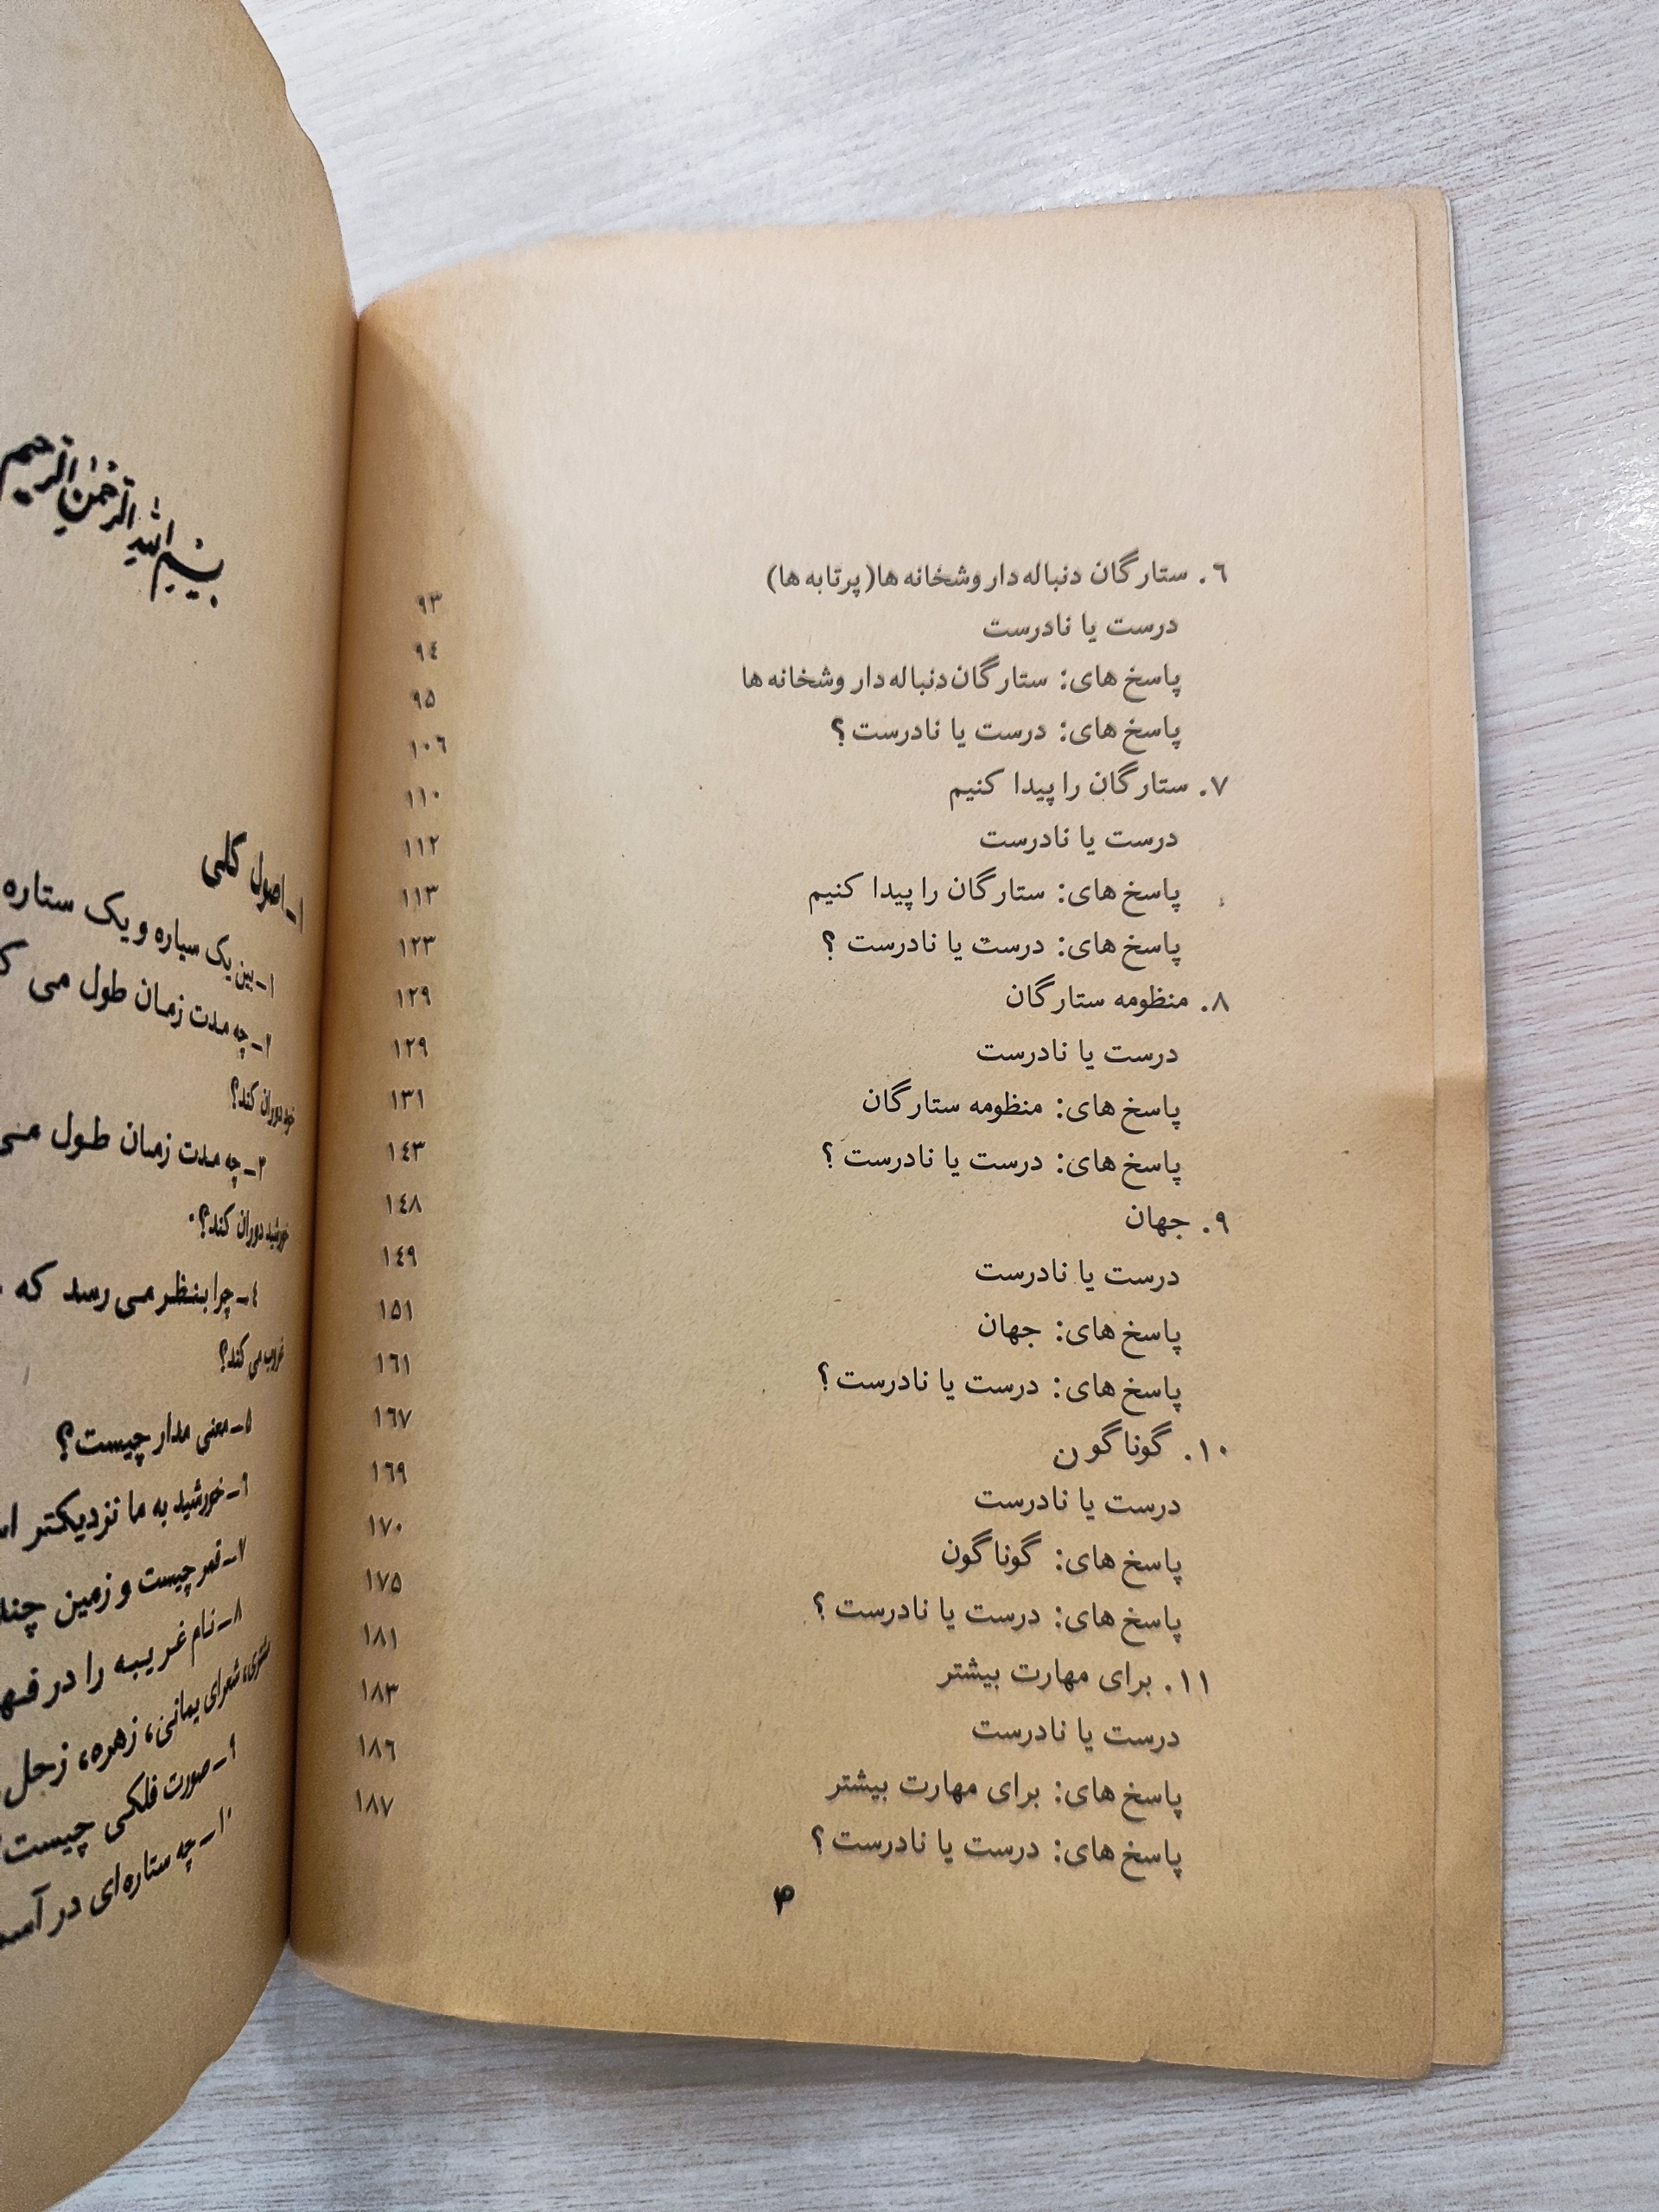 ٦. ستارگان دنباله دار و شخانه ها (پرتابه ها) ۹۳
درست یا نادرست ۹٤
پاسخ های: ستارگان دنباله دار و شخانه ها ۹۵
پاسخ های: درست یا نادرست؟ ۱۰٦
۷. ستارگان را پیدا کنیم ۱۱۰
درست یا نادرست ۱۱۲
پاسخ های: ستارگان را پیدا کنیم ۱۱۳
پاسخ های: درست یا نادرست ؟ ۱۲۳
۸. منظومه ستارگان ۱۲۹
درست یا نادرست ۱۲۹
پاسخ های: منظومه ستارگان ۱۳۱
پاسخ های: درست یا نادرست ؟ ۱٤۳
۹. جهان ۱٤۸
درست یا نادرست ۱٤۹
پاسخ های: جهان ۱۵۱
پاسخ های: درست یا نادرست؟ ۱٦۱
۱۰. گوناگون ۱٦۷
درست یا نادرست ۱٦۹
پاسخ های: گوناگون ۱۷۰
پاسخ های: درست یا نادرست ؟ ۱۷۵
۱۱. برای مهارت بیشتر ۱۸۱
درست یا نادرست ۱۸۳
پاسخ های: برای مهارت بیشتر ۱۸٦
پاسخ های: درست یا نادرست؟ ۱۸۷
۴
بسم الله الرحمن الرحیم
۱ـ اصول کلی
۱ـ بین یک سیاره و یک ستاره
۲ـ چه مدت زمان طول می
خود دوران کند؟
۳ـ چه مدت زمان طول می
خورشید دوران کند؟
٤ـ چرا بنظر می رسد که
غروب می کند؟
۵ـ معنی مدار چیست؟
٦ـ خورشید به ما نزدیکتر
۷ـ قمر چیست و زمین چند
۸ـ نام غریبه را در
شعرای یمانی، زهره، زحل
۹ـ صورت فلکی چیست
۱۰ـ چه ستاره ای در